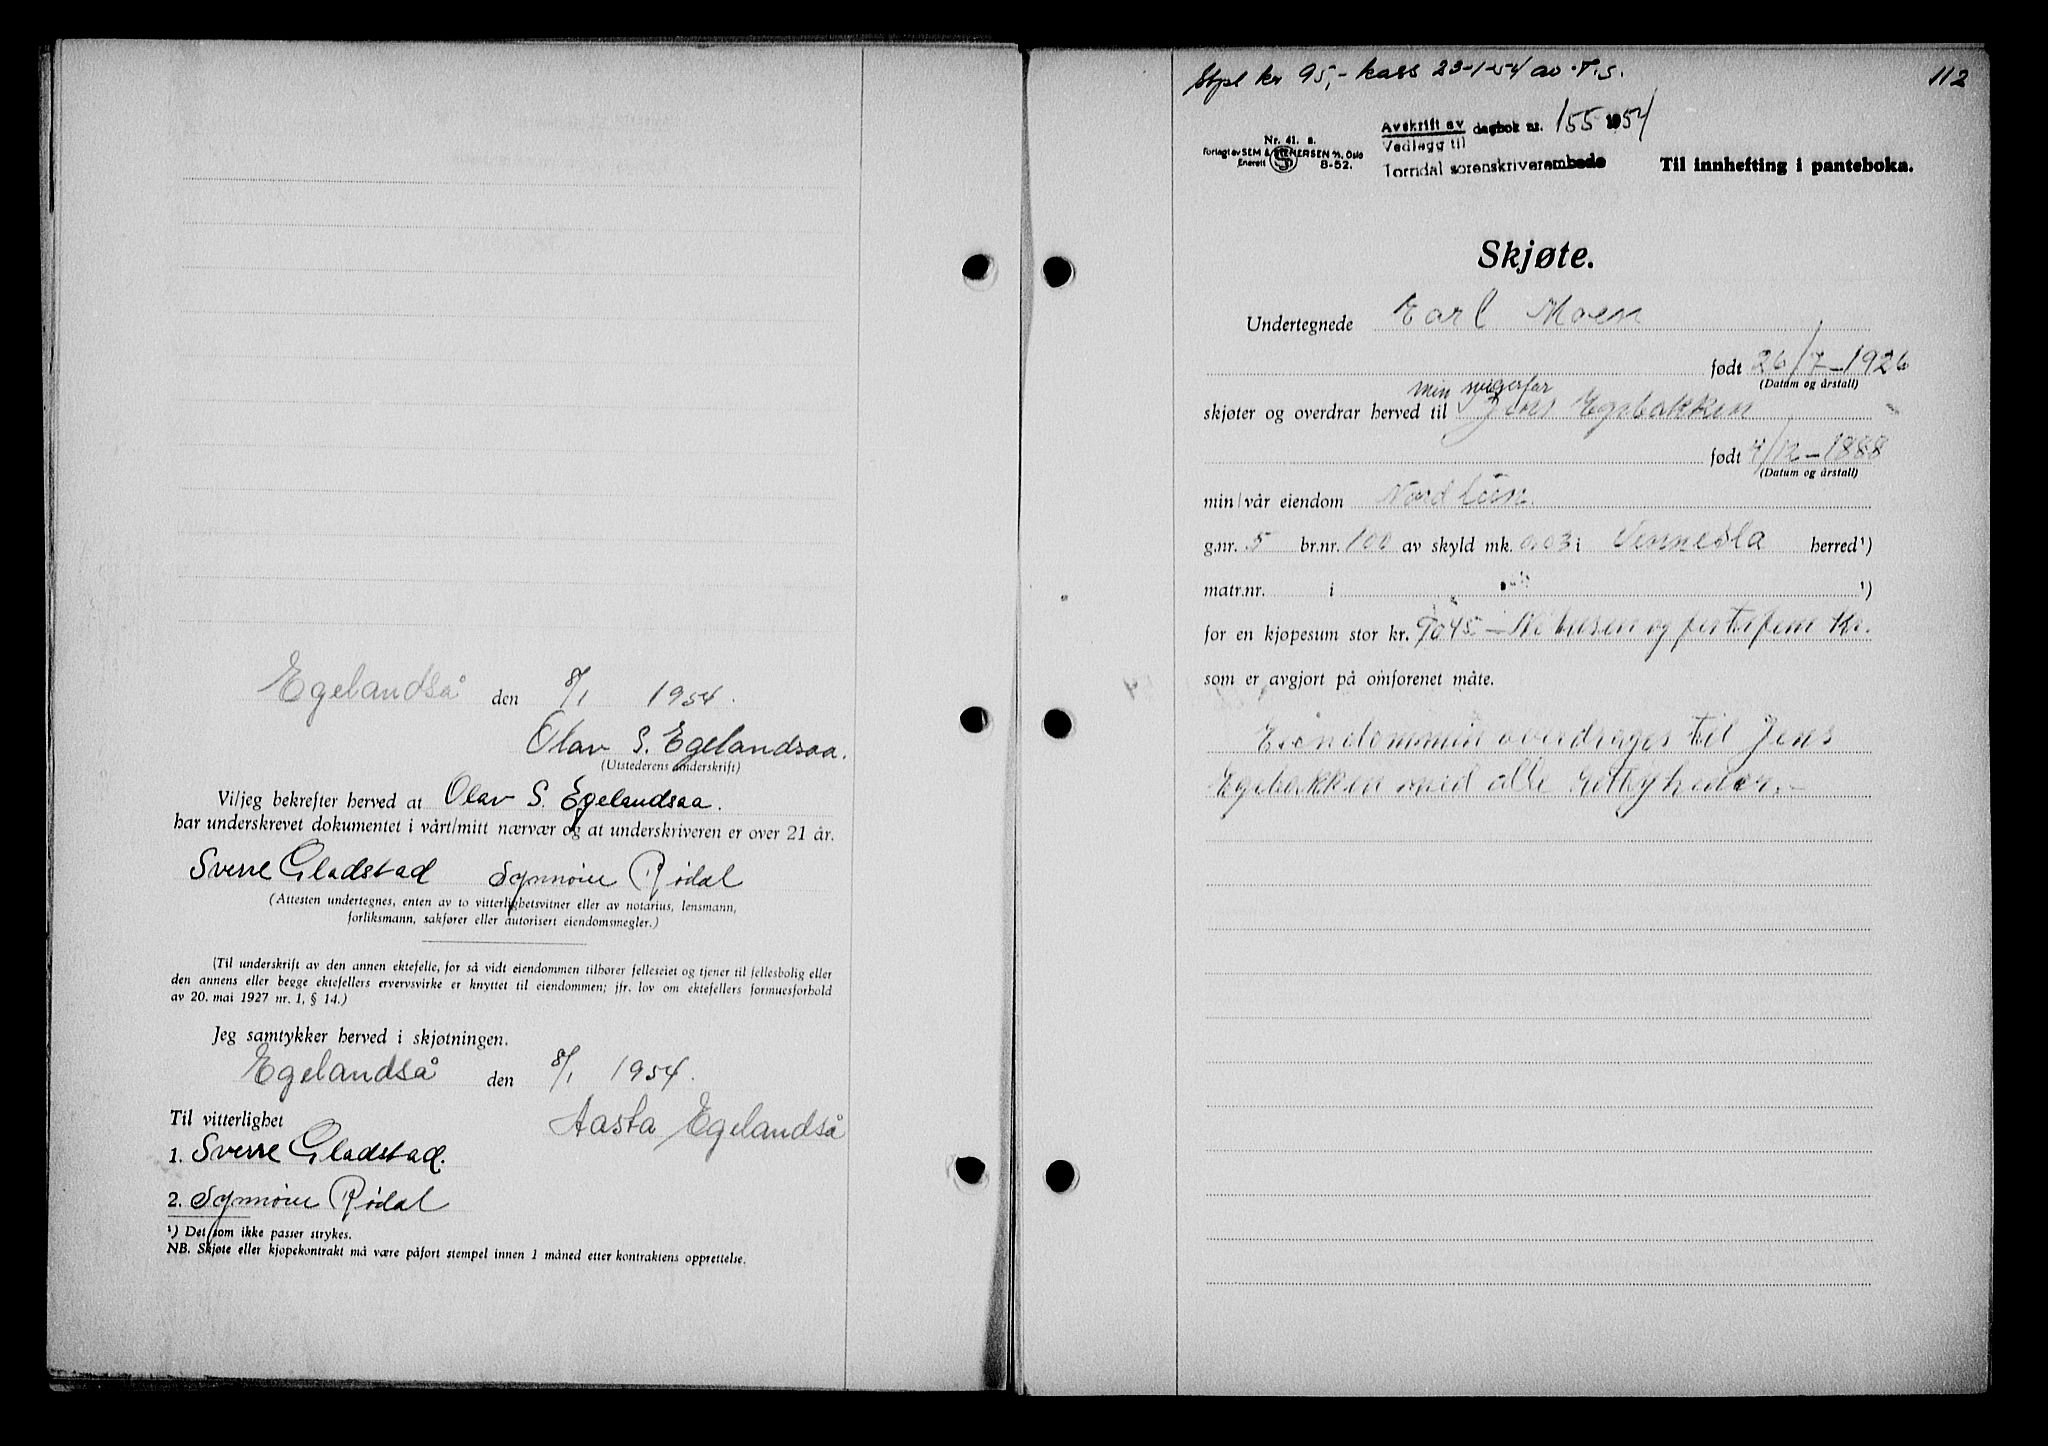 Egelandså den 8/1 1954.
Olav S. Egelandsaa.
(Utstederens underskrift)
Vi/jeg bekrefter herved at Olav S. Egelandsaa.
har underskrevet dokumentet i vårt/mitt nærvær og at underskriveren er over 21 år.
Sverre Gladstad Synnøve Rødal
(Attesten undertegnes, enten av to vitterlighetsvitner eller av notarius, lensmann,
forliksmann, sakfører eller autorisert eiendomsmegler.)
(Til underskrift av den annen ektefelle, for så vidt eiendommen tilhører felleseiet og tjener til fellesbolig eller
den annens eller begge ektefellers ervervsvirke er knyttet til eiendommen; jfr. lov om ektefellers formuesforhold
av 20. mai 1927 nr. 1, § 14.)
Jeg samtykker herved i skjøtningen.
Egelandså den 8/1 1954.
Til vitterlighet Aasta Egelandså
1. Sverre Gladstad.
2. Synnøve Rødal
¹) Det som ikke passer strykes.
NB. Skjøte eller kjøpekontrakt må være påført stempel innen 1 måned etter kontraktens opprettelse.
Stpl kr 95,- kass 23-1-54 av T.S.
112
Avskrift av dagbok nr. 155 1954
Vedlegg til
Torridal sorenskriverembede
Nr. 41. a.
Forlagt av SEM & STENERSEN A/S, Oslo
Enerett S 8-52.
Til innhefting i panteboka.
Skjøte.
Undertegnede Earl Moen
født 26/7-1926
(Datum og årstall)
min svigerfar
skjøter og overdrar herved til Jens Egebakken
født 4/12-1888
(Datum og årstall)
min/vår eiendom Nordlun
g.nr. 5 br.nr. 100 av skyld mk. 0.03 i Vennesla herred¹)
matr.nr. i ¹)
for en kjøpesum stor kr. 9045 - Ni tusen og førtifem Kr.
som er avgjort på omforenet måte.
Eiendommen overdrages til Jens
Egebakken med alle rettigheter.-